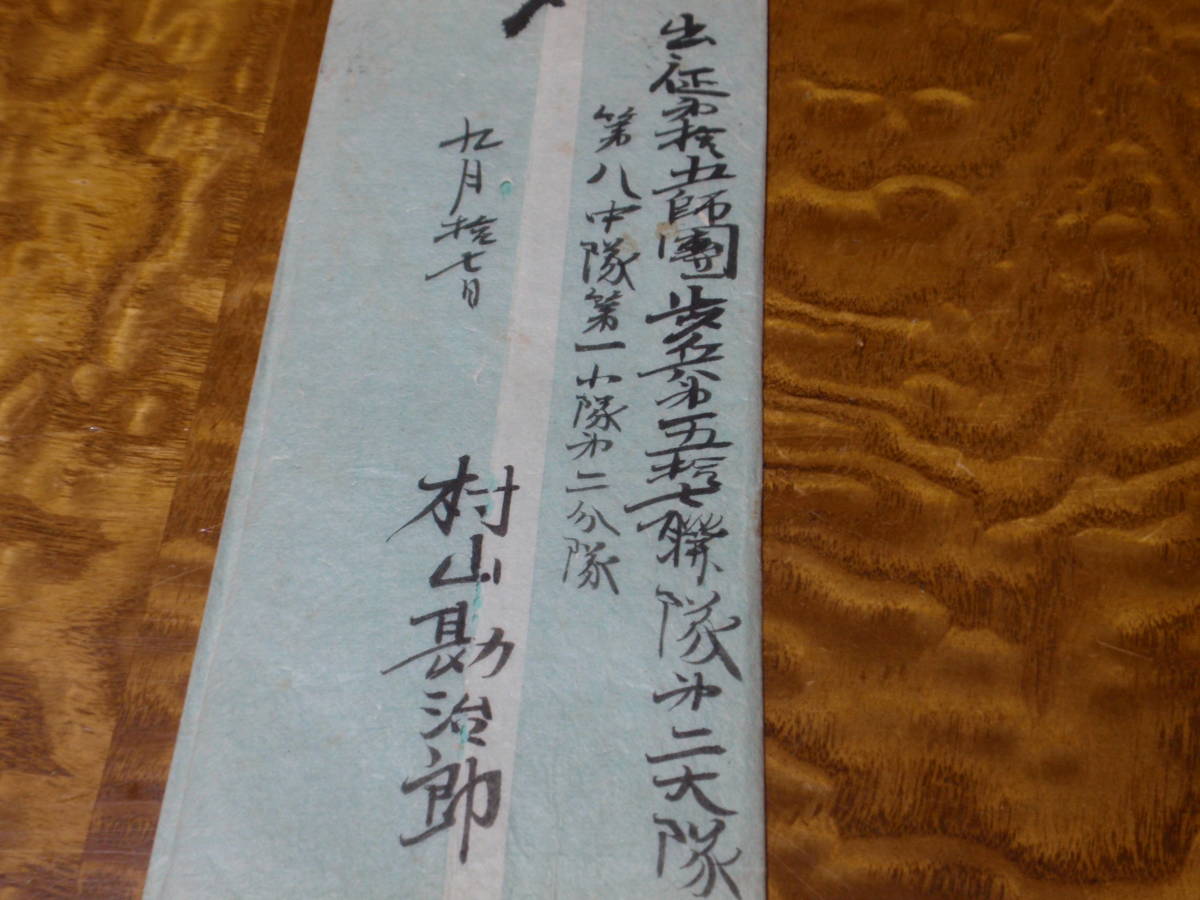 出征第拾五師團歩兵第五拾七聯隊第二大隊
第八中隊第一小隊第二分隊
九月拾七日
村山勘治郎